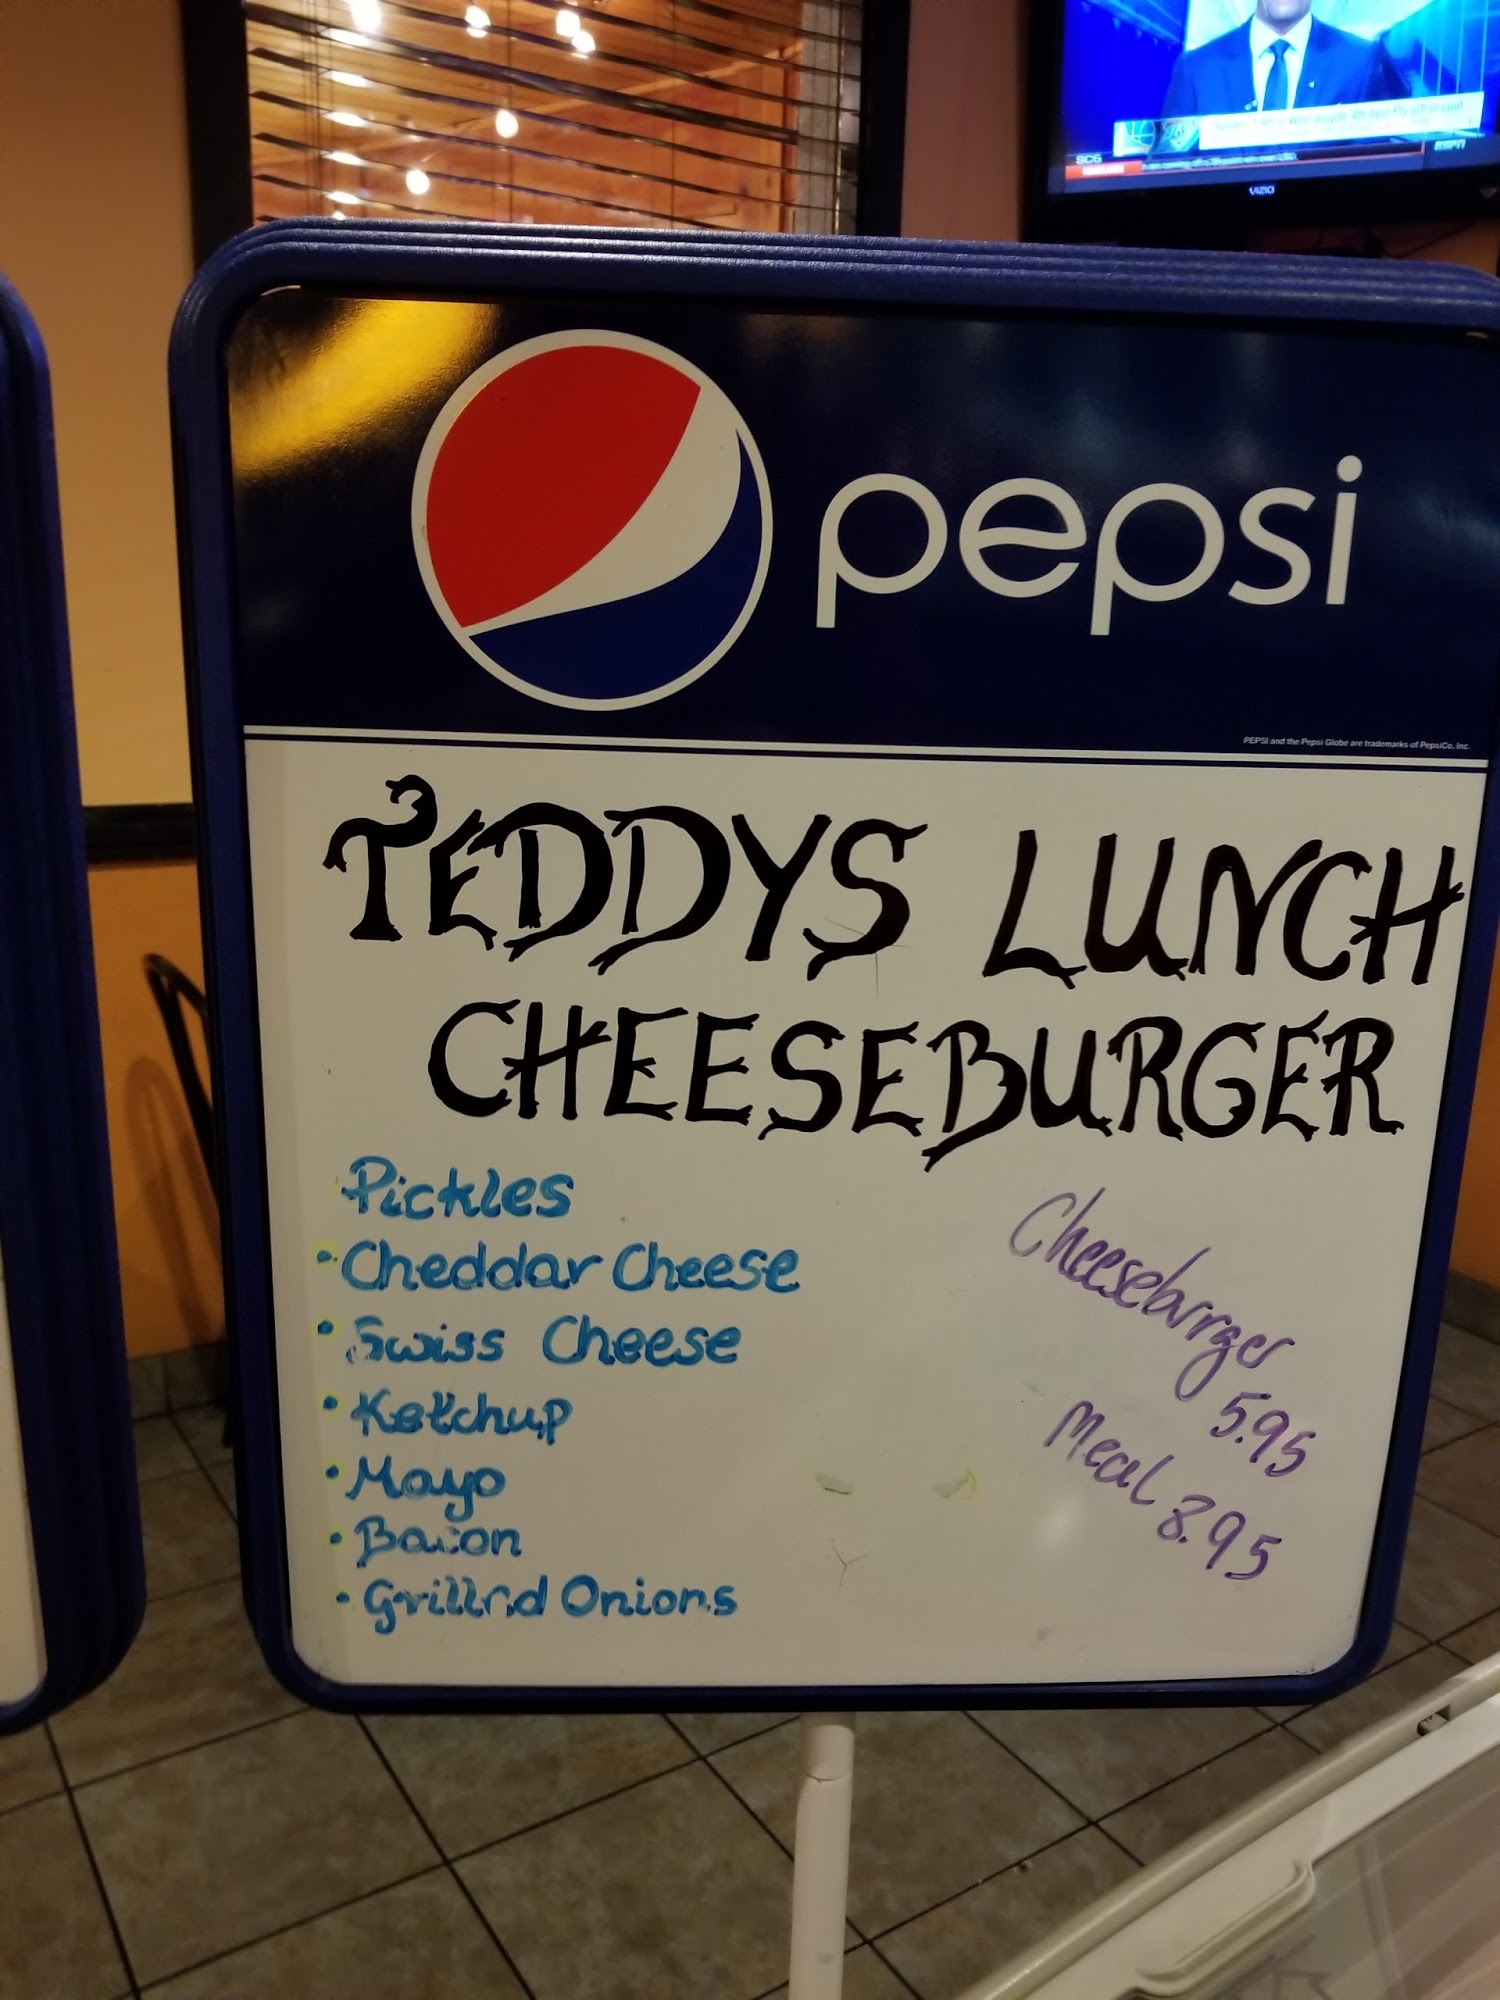 SC6
ESPN
VIZIO
pepsi
PEPSI and the Pepsi Globe are trademarks of PepsiCo, Inc.
TEDDYS LUNCH
CHEESEBURGER
Pickles
• Cheddar Cheese
• Swiss Cheese
• Ketchup
• Mayo
• Bacon
• Grilled Onions
Cheeseburger
5.95
Meal 8.95